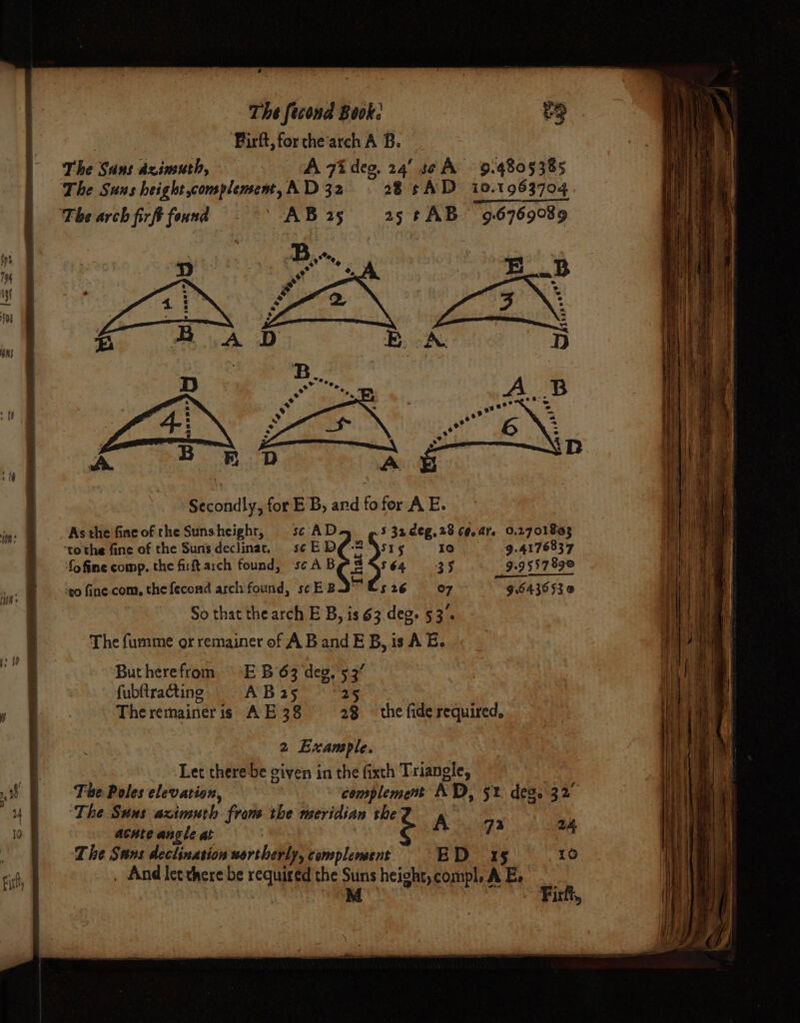 The ſecond Book.
Firſt, for the arch A B.
The Suns azimuth, A 72 deg. 24' sc A 9.4805385
The Suns height, complement, A D 32 28 t A D 10.1963704
The arch firſt found A B 25 25 t A B 9.6769089
D B A E B
1 2 3
E B A D E A D
D B E A B
4 5 6
A B E D A E D
Secondly, for E B, and ſo for A E.
As the ſine of the Suns height, sc AD s 32 deg. 28 co. ar. 0.2701803
to the ſine of the Suns declinat. sc E D s 15 10 9.4176837
ſo ſine comp. the firſt arch found, sc A B That s 64 35 9.9557890
to ſine com. the ſecond arch found, sc E B s 26 07 9.6436530
So that the arch E B, is 63 deg. 53'.
The ſumme or remainer of A B and E B, is A E.
But herefrom E B 63 deg. 53'
ſubſtracting A B 25 25
The remainer is A E 38 28 the ſide required.
2 Example.
Let there be given in the ſixth Triangle,
The Poles elevation, complement A D, 51 deg. 32'
The Suns azimuth from the meridian the
acute angle at A 72 24
The Suns declination northerly, complement E D 15 10
And let there be required the Suns height, compl. A E.
M Firſt,